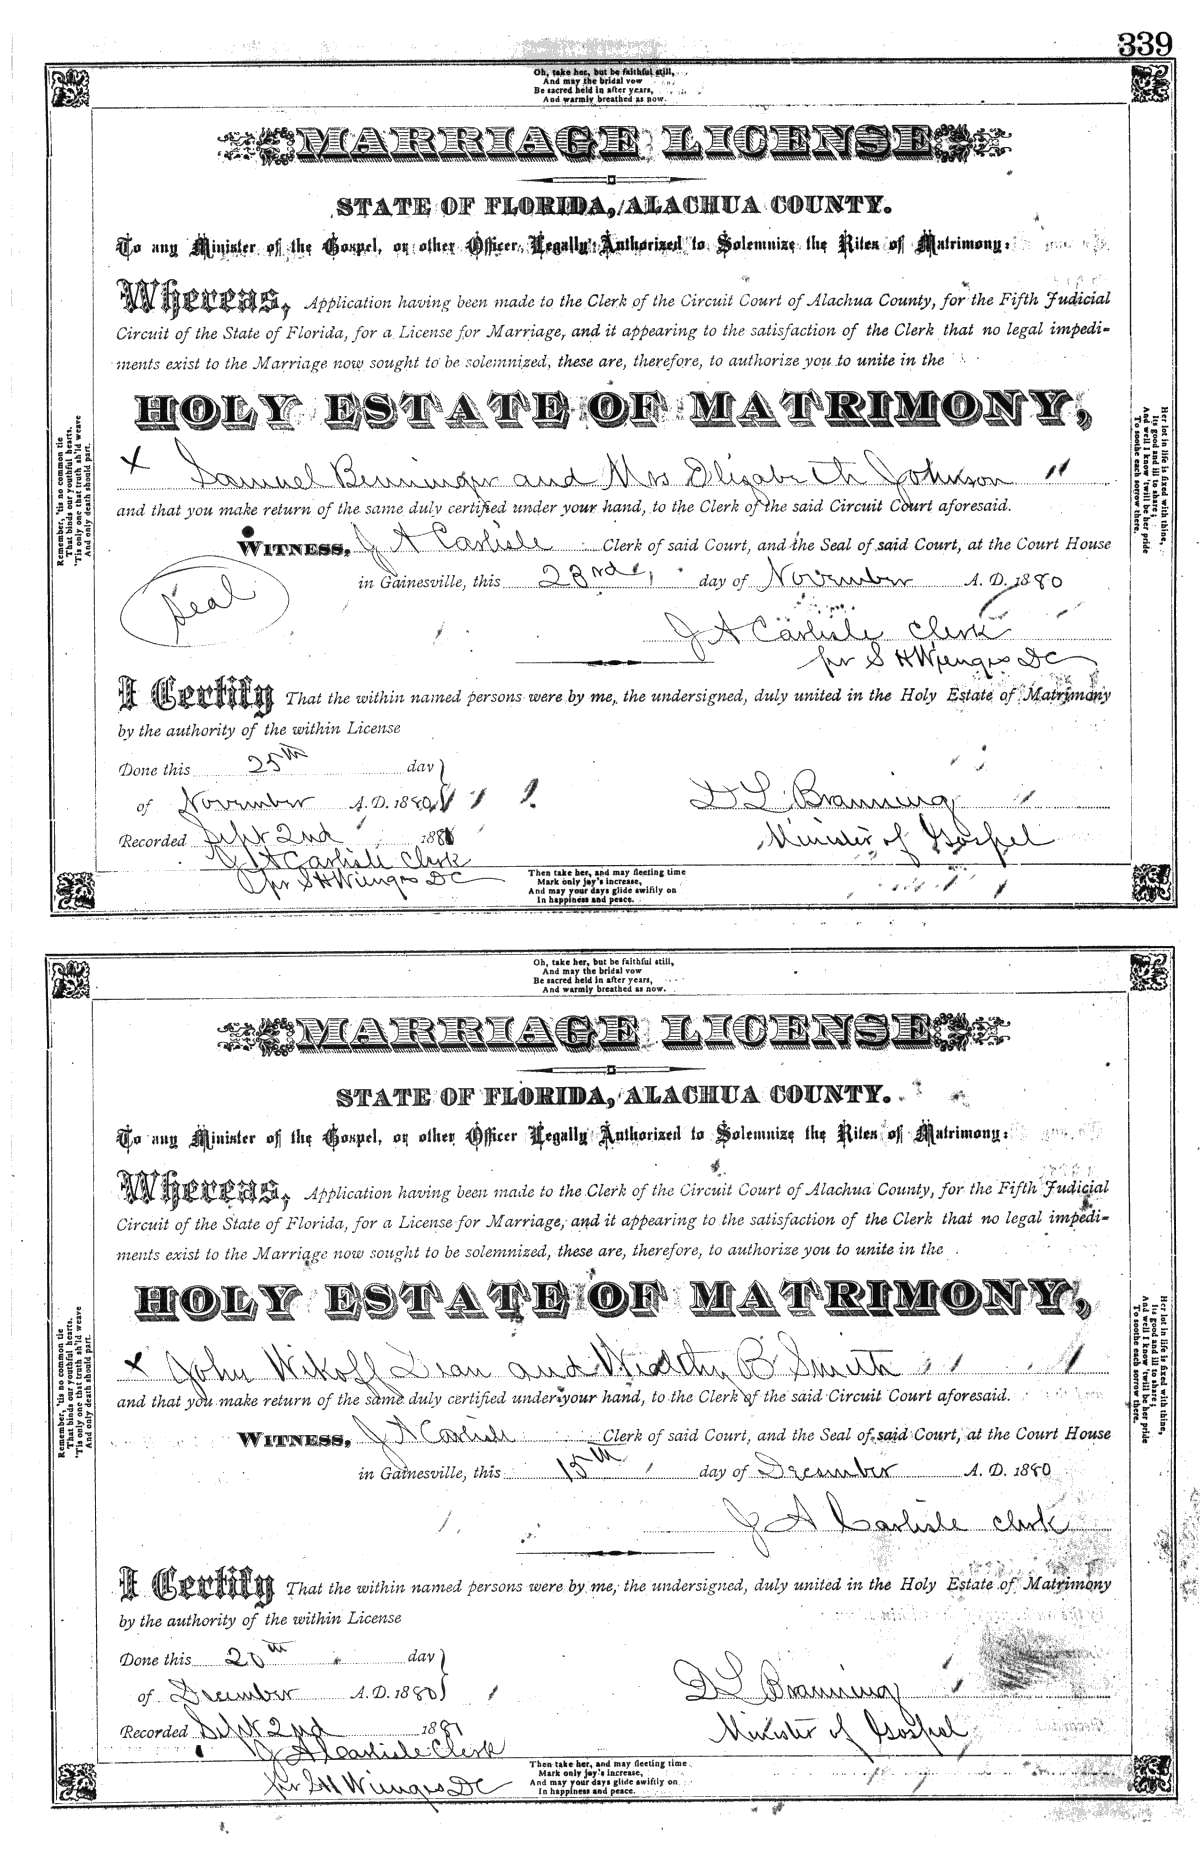 339
Oh, take her, but be faithful still,
And may the bridal vow
Be sacred held in after years,
And warmly breathed as now.
MARRIAGE LICENSE
STATE OF FLORIDA, ALACHUA COUNTY.
To any Minister of the Gospel, or other Officer Legally Authorized to Solemnize the Rites of Matrimony:
Whereas, Application having been made to the Clerk of the Circuit Court of Alachua County, for the Fifth Judicial
Circuit of the State of Florida, for a License for Marriage, and it appearing to the satisfaction of the Clerk that no legal impedi-
ments exist to the Marriage now sought to be solemnized, these are, therefore, to authorize you to unite in the
HOLY ESTATE OF MATRIMONY,
x Samuel Benninger and Mrs Elizabeth Johnson "
and that you make return of the same duly certified under your hand, to the Clerk of the said Circuit Court aforesaid.
WITNESS, J A Carlisle Clerk of said Court, and the Seal of said Court, at the Court House
in Gainesville, this 23rd, day of November A. D. 1880
Seal
J A Carlisle Clerk
pr S H Wienges DC
I Certify That the within named persons were by me, the undersigned, duly united in the Holy Estate of Matrimony
by the authority of the within License
Done this 25th day
of November A. D. 1880
D L Branning
Recorded Sept 2nd 1881
Minister of Gospel
J A Carlisle Clerk
pr S H Wienges DC
Then take her, and may fleeting time
Mark only joy's increase,
And may your days glide swiftly on
In happiness and peace.
Remember, 'tis no common tie
That binds our youthful hearts,
'Tis only one that truth sh'ld weave
And only death should part.
Her lot in life is fixed with thine,
Its good and ill to share;
And well I know 'twill be her pride
To soothe each sorrow there.
Oh, take her, but be faithful still,
And may the bridal vow
Be sacred held in after years,
And warmly breathed as now.
MARRIAGE LICENSE
STATE OF FLORIDA, ALACHUA COUNTY.
To any Minister of the Gospel, or other Officer Legally Authorized to Solemnize the Rites of Matrimony:
Whereas, Application having been made to the Clerk of the Circuit Court of Alachua County, for the Fifth Judicial
Circuit of the State of Florida, for a License for Marriage, and it appearing to the satisfaction of the Clerk that no legal impedi-
ments exist to the Marriage now sought to be solemnized, these are, therefore, to authorize you to unite in the
HOLY ESTATE OF MATRIMONY,
x John Wikoff Dean and B Smith
and that you make return of the same duly certified under your hand, to the Clerk of the said Circuit Court aforesaid.
WITNESS, J A Carlisle Clerk of said Court, and the Seal of said Court, at the Court House
in Gainesville, this 15th day of December A. D. 1880
J A Carlisle Clerk
I Certify That the within named persons were by me, the undersigned, duly united in the Holy Estate of Matrimony
by the authority of the within License
Done this 20th day
of December A. D. 1880
D L Branning
Recorded Sept 2nd 1881
Minister of Gospel
J A Carlisle Clerk
pr S H Wienges DC
Then take her, and may fleeting time
Mark only joy's increase,
And may your days glide swiftly on
In happiness and peace.
Remember, 'tis no common tie
That binds our youthful hearts,
'Tis only one that truth sh'ld weave
And only death should part.
Her lot in life is fixed with thine,
Its good and ill to share;
And well I know 'twill be her pride
To soothe each sorrow there.